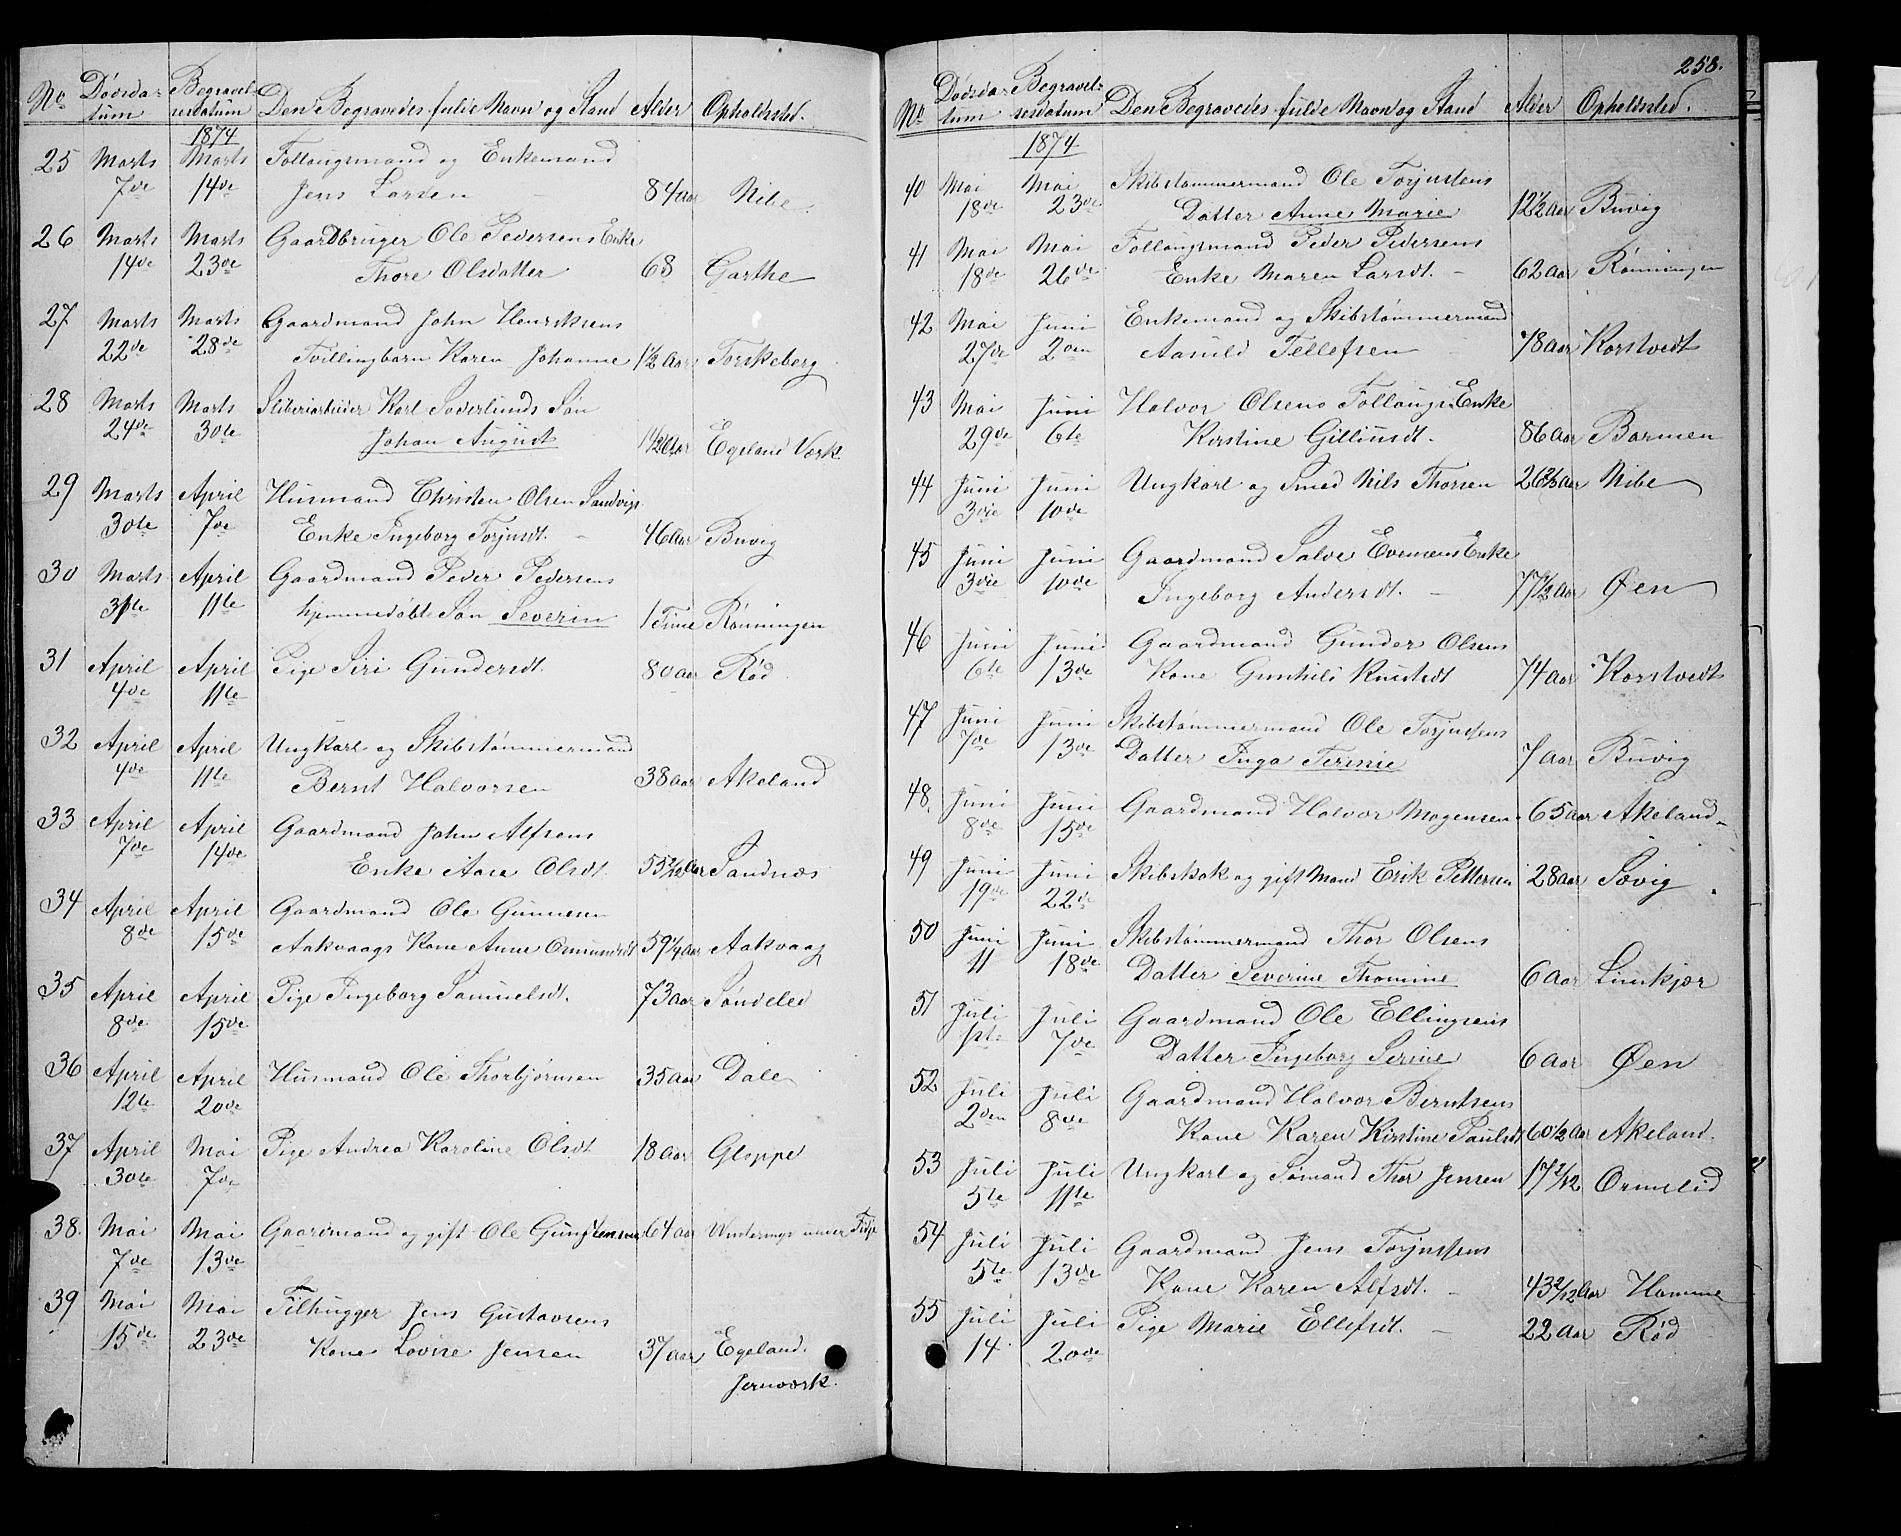 No Dødsdatum Begravelsesdatum Den Begravedes fulde Navn og Stand Alder Opholdssted.
1874
25 Marts Marts Follaugsmand og Enkemand
7de 14de Jens Larsen 84 aar Nibe.
26 Marts Marts Gaardbruger Ole Pedersens Enke
14de 23de Thore Olsdatter 68 Garthe
27 Marts Marts Gaardmand John Henriksens
22de 28de Tvillingbarn Karen Johanne 1½ Aar Torskeberg
28 Marts Marts Karl Soderlunds Søn
24de 30te Johan August Egeland Værk.
29 Marts April Husmand Christen Olsen Sandvigs
30te 7de Enke Ingeborg Torjusdt. 46 Aar Buvig
30 Marts April Gaardmand Peder Pedersens
31te 11te hjemmedøbte Søn Severin 1 Time Rønningen
31 April April Pige Siri Gundersdt. 80 aar Rød
4de 11te
32 April April Ungkarl og Skibstømmermand
4de 11te Bernt Halvorsen 38 aar Akeland
33 April April Gaardmand John Alfsens
7de 14de Enke Aase Olsdt. 55 2/12 Aar Sandnæs
34 April April Gaardmand Ole Gunnesen
8de 15de Aakvaags Kone Anne Omundsdt 59¼ Aar Aakvaag
35 April April Pige Ingeborg Samuelsdt. 73 aar Søndeled
8de 15de
36 April April Husmand Ole Thorbjørnsen 35 aar Dale
12te 20de
37 April Mai Pige Andrea Karoline Olsdt 18 aar Gloppe
30te 7de
38. Mai Mai Gaardmand og gift Ole 64 aar
7de 13de
39 Mai Mai Filhugger Jens Gustavsens
15de 23de Kone Lovise Jensen 37 aar Egeland
Jernværk.
258.
No Dødsdatum Begravelsesdatum Den Begravedes fulde Navn og Stand Alder Opholdssted.
1874
40 Mai Mai Skibstømmermand Ole Torjussens
18de 23de Datter Anne Marie 12½ Aar Buvig
41 Mai Mai Follaugsmand Peder Pedersens
18de 26de Enke Maren Larsdt. 62 Aar Rønningen
42 Mai Juni Enkemand og Skibstømmermand
27de 2den Aasuld Tellefsen 78 aar Korstvedt
43 Mai Juni Halvor Olsens Follaugs Enke
29de 6te Kirstine Gilliusdt. 86 aar Barmen
44 Juni Juni Ungkarl og Smed Nils Thorsen Nibe
3die 10de
45 Juni Juni Gaardmand Salve Evensens Enke
3die 10de Ingeborg Andersdt. 77½ Aar Øen
46 Juni Juni Gaardmand Gunder Olsens
6te 13de Kone Gunhild Knudsdt 74 aar Korstvedt
47 Juni Juni Skibstømmermand Ole Torjussens
7de 13de Datter Inga Teresie 7 aar Buvig
48. Juni Juni Gaardmand Halvor Mogensen. 65 aar Akeland
8de 15de
49 Juni Juni Skibskok og gift Mand Erik Pettersen 28 aar Søvig
19de 22de
50 Juni Juni Skibstømmermand Thor Olsens
11 18de Datter Severine Thomine 6 Aar Linkjær
51 Juli Juli Gaardmand Ole Ellingsens
1ste 7de Datter Ingeborg Serine 6 Aar Øen
52 Juli Juli Gaardmand Halvor Berntsens
2den 8de Kone Karen Kirstine Paulsdt 60½ Aar Akeland.
53 Juli Juli Ungkarl og Sømand Thor Jensen 17 2/12 Ormelid
5te 11te
54 Juli Juli Gaardmand Jens Torjussens
5te 13de Kone Karen Alfsdt. 43 2/12 Aar Hamme
55 Juli Juli Pige Marie Ellefsdt. 22 Aar Rød
14 20de